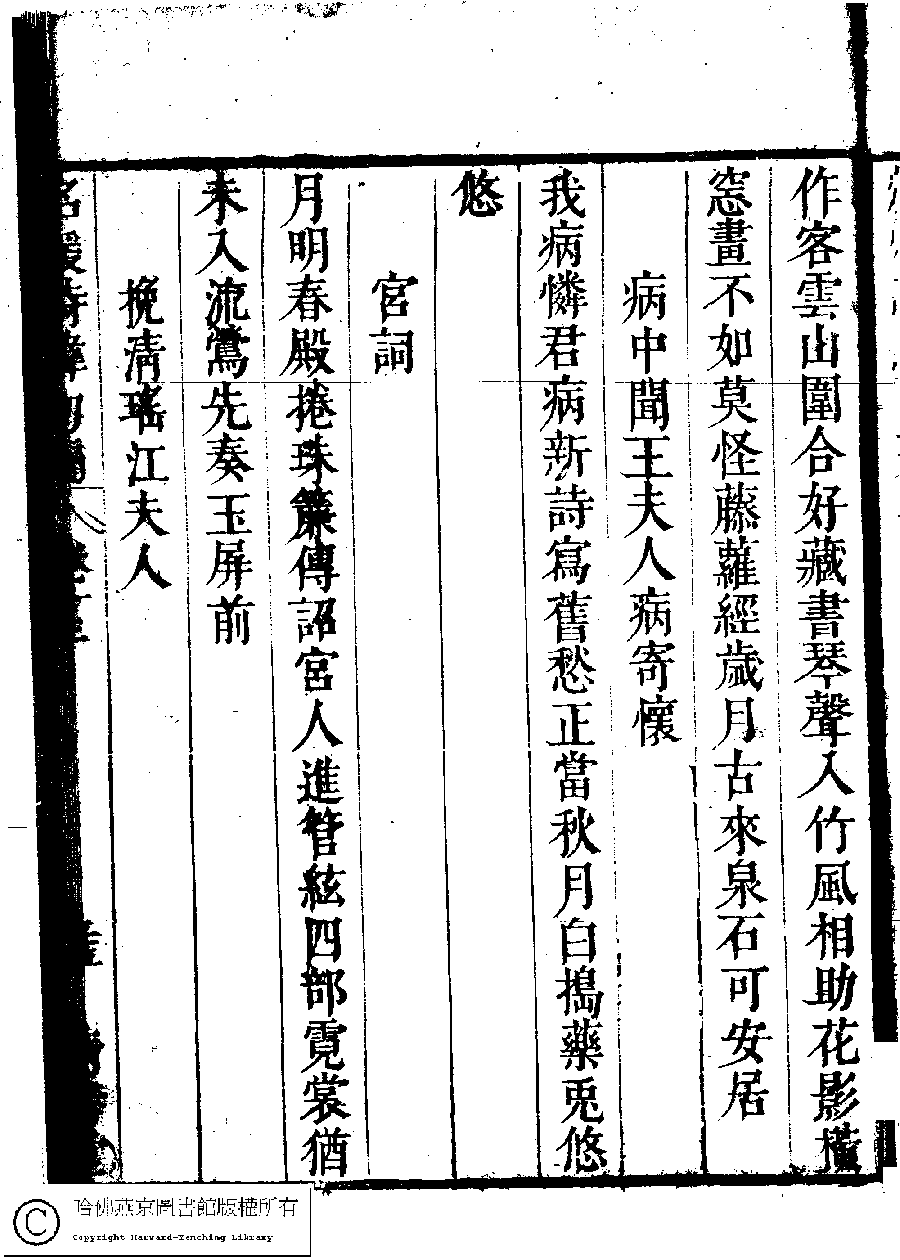 作客雲山圍合好藏書琴聲入竹風相助花影橫
窓畫不如莫怪藤蘿經歲月古來泉石可安居
病中聞王夫人病寄懷
我病憐君病新詩寫舊愁正當秋月白搗藥兎悠
悠
宮詞
月明春殿捲珠簾傳詔宮人進管絃四部霓裳猶
未入流鶯先奏玉屏前
挽清瑤江夫人
名媛詩緯初編
哈佛燕京圖書館版權所有
Copyright Harvard-Yenching Library